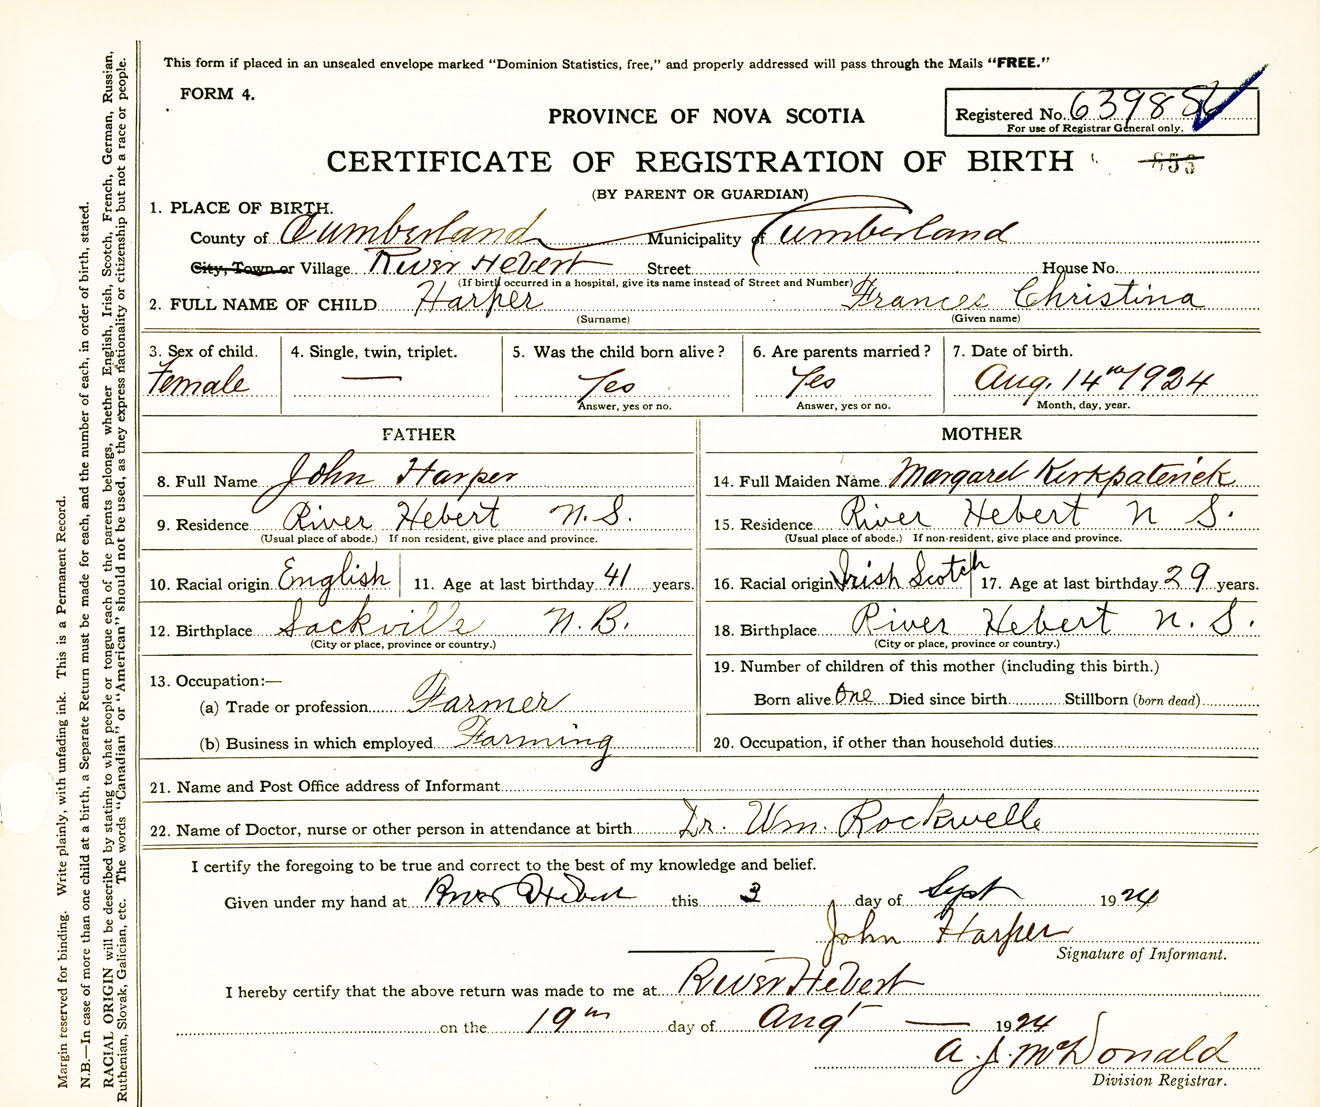 This form if placed in an unsealed envelope marked "Dominion Statistics, free," and properly addressed will pass through the Mails "FREE."
FORM 4.
PROVINCE OF NOVA SCOTIA
Registered No. 63985
For use of Registrar General only.
CERTIFICATE OF REGISTRATION OF BIRTH
(BY PARENT OR GUARDIAN)
1. PLACE OF BIRTH.
County of Cumberland Municipality of Cumberland
City, Town or Village River Hebert Street House No.
(If birth occurred in a hospital, give its name instead of Street and Number)
2. FULL NAME OF CHILD Harper Frances Christina
(Surname) (Given name)
3. Sex of child. 4. Single, twin, triplet. 5. Was the child born alive? 6. Are parents married? 7. Date of birth.
Female — Yes Yes Aug. 14th 1924
Answer, yes or no. Answer, yes or no. Month, day, year.
FATHER
8. Full Name John Harper
9. Residence River Hebert N.S.
(Usual place of abode.) If non resident, give place and province.
10. Racial origin English 11. Age at last birthday 41 years.
12. Birthplace Sackville N.B.
(City or place, province or country.)
13. Occupation:—
(a) Trade or profession Farmer
(b) Business in which employed Farming
MOTHER
14. Full Maiden Name Margaret Kirkpaterick
15. Residence River Hebert N S.
(Usual place of abode.) If non-resident, give place and province.
16. Racial origin Irish Scotch 17. Age at last birthday 29 years.
18. Birthplace River Hebert N. S.
(City or place, province or country.)
19. Number of children of this mother (including this birth.)
Born alive One Died since birth Stillborn (born dead)
20. Occupation, if other than household duties
21. Name and Post Office address of Informant
22. Name of Doctor, nurse or other person in attendance at birth Dr. Wm. Rockwell
I certify the foregoing to be true and correct to the best of my knowledge and belief.
Given under my hand at River Hebert this 3 day of Sept 1924
John Harper
Signature of Informant.
I hereby certify that the above return was made to me at River Hebert
on the 19th day of Augt — 1924
A. J. McDonald
Division Registrar.
Margin reserved for binding. Write plainly, with unfading ink. This is a Permanent Record.
N.B.—In case of more than one child at a birth, a Separate Return must be made for each, and the number of each, in order of birth, stated.
RACIAL ORIGIN will be described by stating to what people or tongue each of the parents belongs, whether English, Irish, Scotch, French, German, Russian,
Ruthenian, Slovak, Galician, etc. The words "Canadian" or "American" should not be used, as they express nationality or citizenship but not a race or people.